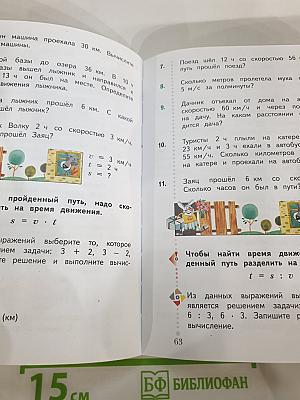 ин машина проехала 30 км. Вычислите
машины.
ой базы до озера 36 км. В 10 ч
азы вышел лыжник и направился
13 ч он был на месте. Определите
движения лыжника.
лыжник прошёл 6 км. С какой
прошёл?
к Волку 2 ч со скоростью 3 км/ч.
прошёл Заяц?
v = 3
t = 2
s = ?
пройденный путь, надо ско-
ть на время движения.
s = v · t
ыражений выберите то, которое
ением задачи: 3 + 2, 3 − 2,
е решение и выполните вычис-
(км)
7. Поезд шёл 12 ч со скоростью 56
путь прошёл поезд?
8. Сколько метров пролетела муха
5 м/с за полминуты?
9. Дачник отъехал от дома на
скоростью 60 км/ч и через
на дачу. На каком расстоянии
дится дача?
10. Туристы 2 ч плыли на катере
23 км/ч и 3 ч ехали в автобусе
55 км/ч. Сколько километров
на катере и проехали на автобусе
11. Заяц прошёл 6 км со скоростью
Сколько часов он был в пути?
Чтобы найти время движения
денный путь разделить на
t = s : v
Из данных выражений выберите
является решением задачи:
6 : 3, 6 · 3. Запишите
вычисление.
63
15 СМ
БФ БИБЛИОФАН